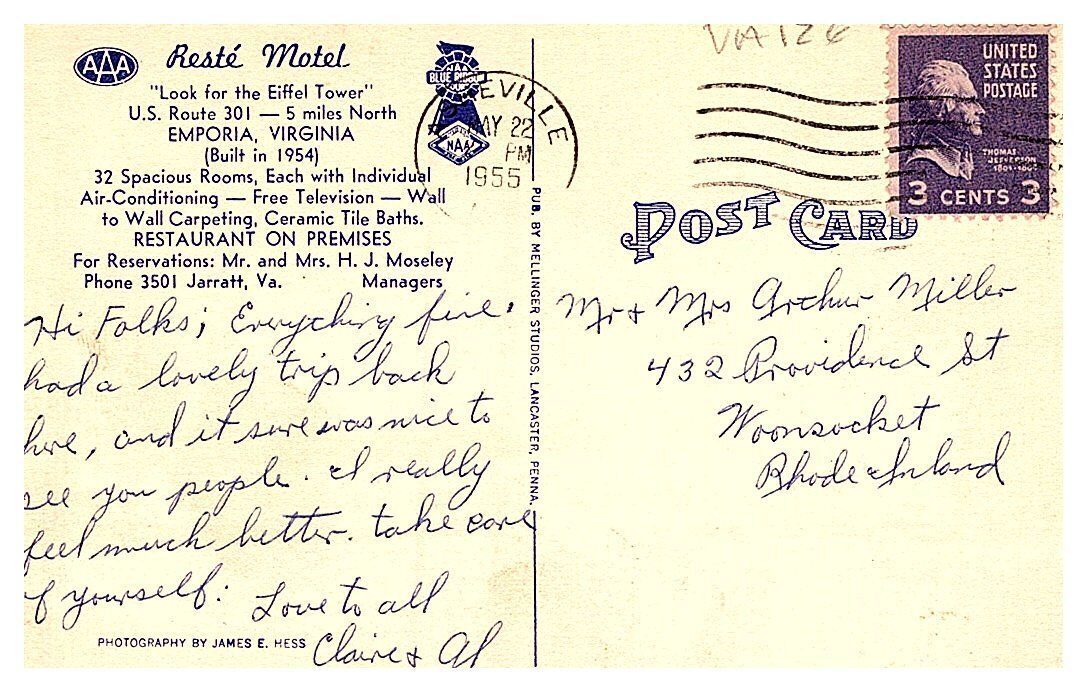 AAA
Resté Motel
"Look for the Eiffel Tower"
U.S. Route 301 — 5 miles North
EMPORIA, VIRGINIA
(Built in 1954)
32 Spacious Rooms, Each with Individual
Air-Conditioning — Free Television — Wall
to Wall Carpeting, Ceramic Tile Baths.
RESTAURANT ON PREMISES
For Reservations: Mr. and Mrs. H. J. Moseley
Phone 3501 Jarratt, Va. Managers
Hi Folks; Everything fine.
had a lovely trip back
here, and it sure was nice to
see you people. I really
feel much better. take care
of yourself. Love to all
Claire & Al
PHOTOGRAPHY BY JAMES E. HESS
BLUE RIDGE
NAA
EVILLE
MAY 22
PM
1955
PUB. BY MELLINGER STUDIOS, LANCASTER, PENNA.
VA 126
UNITED
STATES
POSTAGE
THOMAS
JEFFERSON
3 CENTS 3
POST CARD
Mr & Mrs Arthur Miller
432 Providence St
Woonsocket
Rhode Inland